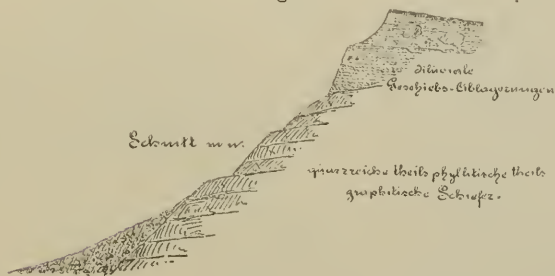 diluviale
Geschiebs-Ablagerungen
Schnitt m n.
quarzreiche theils phyllitische theils
graphitische Schiefer.